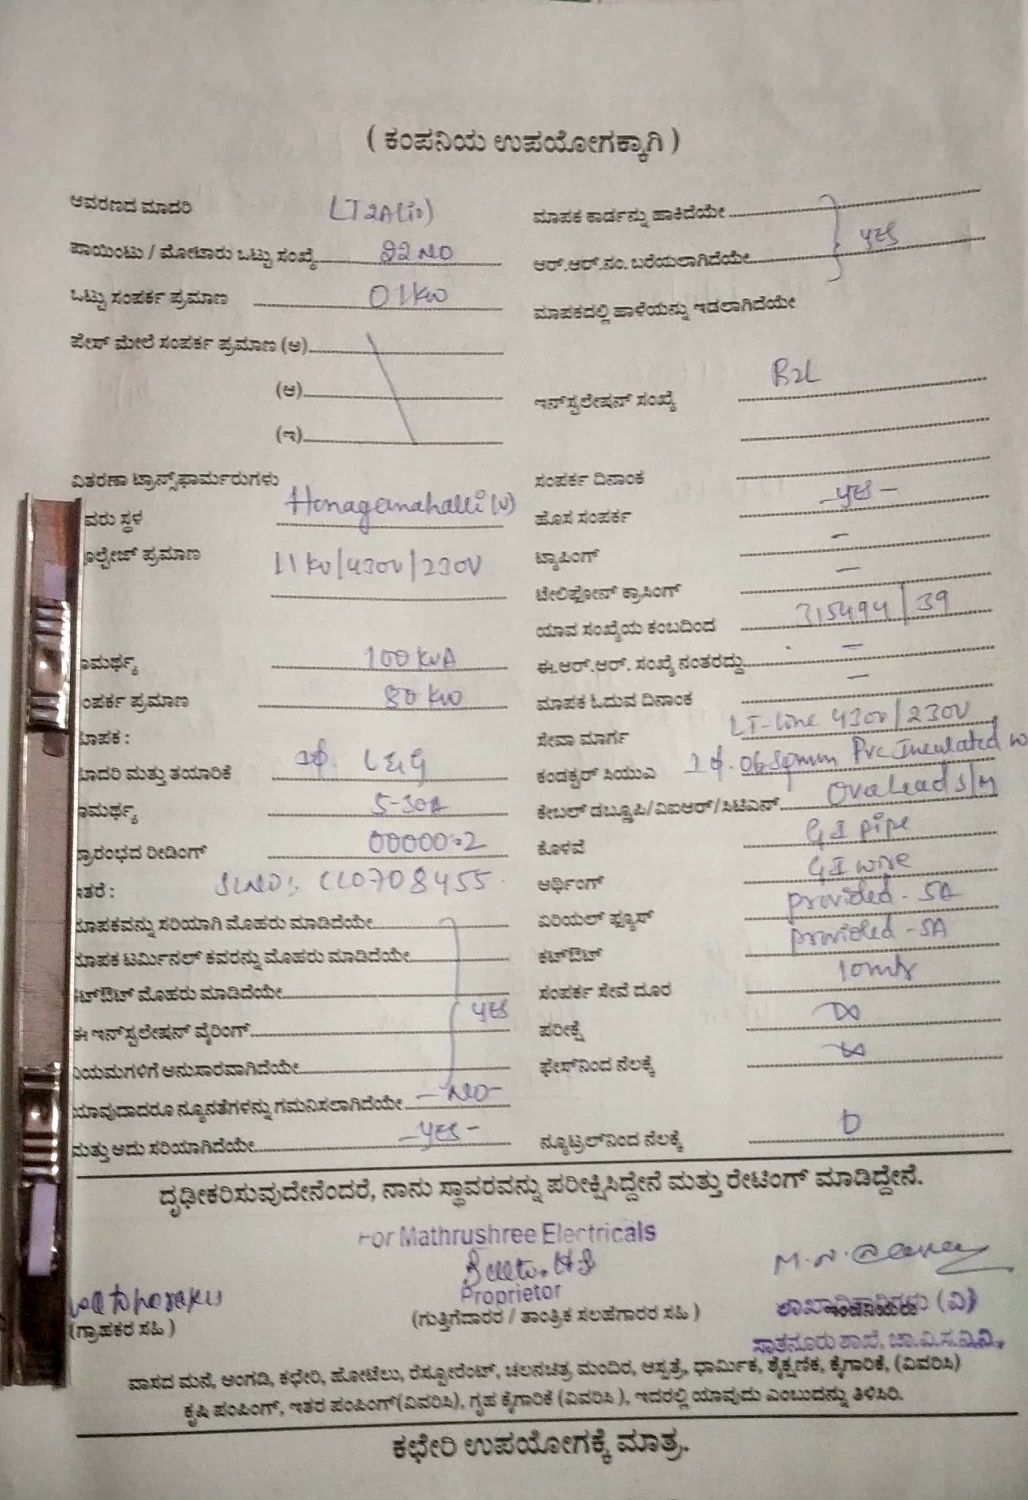 ( ಕಂಪನಿಯ ಉಪಯೋಗಕ್ಕಾಗಿ )
ಆವರಣದ ಮಾದರಿ LT2A(ii)
ಪಾಯಿಂಟು / ಮೋಟಾರು ಒಟ್ಟು ಸಂಖ್ಯೆ 22 NO
ಒಟ್ಟು ಸಂಪರ್ಕ ಪ್ರಮಾಣ 01 KW
ಪೇಸ್ ಮೇಲೆ ಸಂಪರ್ಕ ಪ್ರಮಾಣ (ಅ)
(ಆ)
(ಇ)
ವಿತರಣಾ ಟ್ರಾನ್ಸ್‌ಫಾರ್ಮರುಗಳು
ವರು ಸ್ಥಳ Honaganahalli (V)
ೂಲ್ಟೇಜ್ ಪ್ರಮಾಣ 11 KV/430V/230V
ಾಮರ್ಥ್ಯ 100 KVA
ಂಪರ್ಕ ಪ್ರಮಾಣ 80 KW
ಾಪಕ :
ಾದರಿ ಮತ್ತು ತಯಾರಿಕೆ 1φ. L&G
ಾಮರ್ಥ್ಯ 5-30A
್ರಾರಂಭದ ರೀಡಿಂಗ್ 00000.2
ತರೆ : SLNO:
ಾಪಕವನ್ನು ಸರಿಯಾಗಿ ಮೊಹರು ಮಾಡಿದೆಯೇ
ಾಪಕ ಟರ್ಮಿನಲ್ ಕವರನ್ನು ಮೊಹರು ಮಾಡಿದೆಯೇ
ಟ್‌ಔಟ್ ಮೊಹರು ಮಾಡಿದೆಯೇ
ಈ ಇನ್‌ಸ್ಟಲೇಷನ್ ವೈರಿಂಗ್ YES
ನಿಯಮಗಳಿಗೆ ಅನುಸಾರವಾಗಿದೆಯೇ
ಯಾವುದಾದರೂ ನ್ಯೂನತೆಗಳನ್ನು ಗಮನಿಸಲಾಗಿದೆಯೇ -NO-
ಮತ್ತು ಅದು ಸರಿಯಾಗಿದೆಯೇ -YES-
ಮಾಪಕ ಕಾರ್ಡನ್ನು ಹಾಕಿದೆಯೇ
ಆರ್.ಆರ್.ನಂ. ಬರೆಯಲಾಗಿದೆಯೇ YES
ಮಾಪಕದಲ್ಲಿ ಹಾಳೆಯನ್ನು ಇಡಲಾಗಿದೆಯೇ
ಇನ್‌ಸ್ಟಲೇಷನ್ ಸಂಖ್ಯೆ
ಸಂಪರ್ಕ ದಿನಾಂಕ
ಹೊಸ ಸಂಪರ್ಕ -YES-
ಟ್ಯಾಪಿಂಗ್ -
ಟೇಲಿಫೋನ್ ಕ್ರಾಸಿಂಗ್ -
ಯಾವ ಸಂಖ್ಯೆಯ ಕಂಬದಿಂದ 315494/39
ಈ.ಆರ್.ಆರ್. ಸಂಖ್ಯೆ ನಂತರದ್ದು -
ಮಾಪಕ ಓದುವ ದಿನಾಂಕ -
ಸೇವಾ ಮಾರ್ಗ LT-line 430V/230V
ಕಂಡಕ್ಟರ್ ಸಿಯುಎ 1φ. 06 sqmm Pvc Insulated w
ಕೇಬಲ್ ಡಬ್ಲ್ಯೂಪಿ/ವಿಐಆರ್/ಸಿಟಿಎಸ್ Overhead S/M
ಕೊಳವೆ GI pipe
ಅರ್ಥಿಂಗ್ GI wire
ಏರಿಯಲ್ ಫ್ಯೂಸ್ provided - 5A
ಕಟ್‌ಔಟ್ provided - 5A
ಸಂಪರ್ಕ ಸೇವೆ ದೂರ 10mtr
ಪರೀಕ್ಷೆ ∞
ಫೇಸ್‌ನಿಂದ ನೆಲಕ್ಕೆ ∞
ನ್ಯೂಟ್ರಲ್‌ನಿಂದ ನೆಲಕ್ಕೆ 0
ದೃಢೀಕರಿಸುವುದೇನೆಂದರೆ, ನಾನು ಸ್ಥಾವರವನ್ನು ಪರೀಕ್ಷಿಸಿದ್ದೇನೆ ಮತ್ತು ರೇಟಿಂಗ್ ಮಾಡಿದ್ದೇನೆ.
For Mathrushree Electricals
Proprietor
(ಗ್ರಾಹಕರ ಸಹಿ )
(ಗುತ್ತಿಗೆದಾರರ / ತಾಂತ್ರಿಕ ಸಲಹೆಗಾರರ ಸಹಿ )
ಶಾಖಾಧಿಕಾರಿಗಳು (ವಿ)
ಸಾತನೂರು ಶಾಖೆ, ಚಾ.ವಿ.ಸ.ನಿ.ನಿ.,
ವಾಸದ ಮನೆ, ಅಂಗಡಿ, ಕಛೇರಿ, ಹೋಟೆಲು, ರೆಸ್ಟೋರೆಂಟ್, ಚಲನಚಿತ್ರ ಮಂದಿರ, ಆಸ್ಪತ್ರೆ, ಧಾರ್ಮಿಕ, ಶೈಕ್ಷಣಿಕ, ಕೈಗಾರಿಕೆ, (ವಿವರಿಸಿ)
ಕೃಷಿ ಪಂಪಿಂಗ್, ಇತರ ಪಂಪಿಂಗ್(ವಿವರಿಸಿ), ಗೃಹ ಕೈಗಾರಿಕೆ (ವಿವರಿಸಿ ), ಇದರಲ್ಲಿ ಯಾವುದು ಎಂಬುದನ್ನು ತಿಳಿಸಿರಿ.
ಕಛೇರಿ ಉಪಯೋಗಕ್ಕೆ ಮಾತ್ರ.